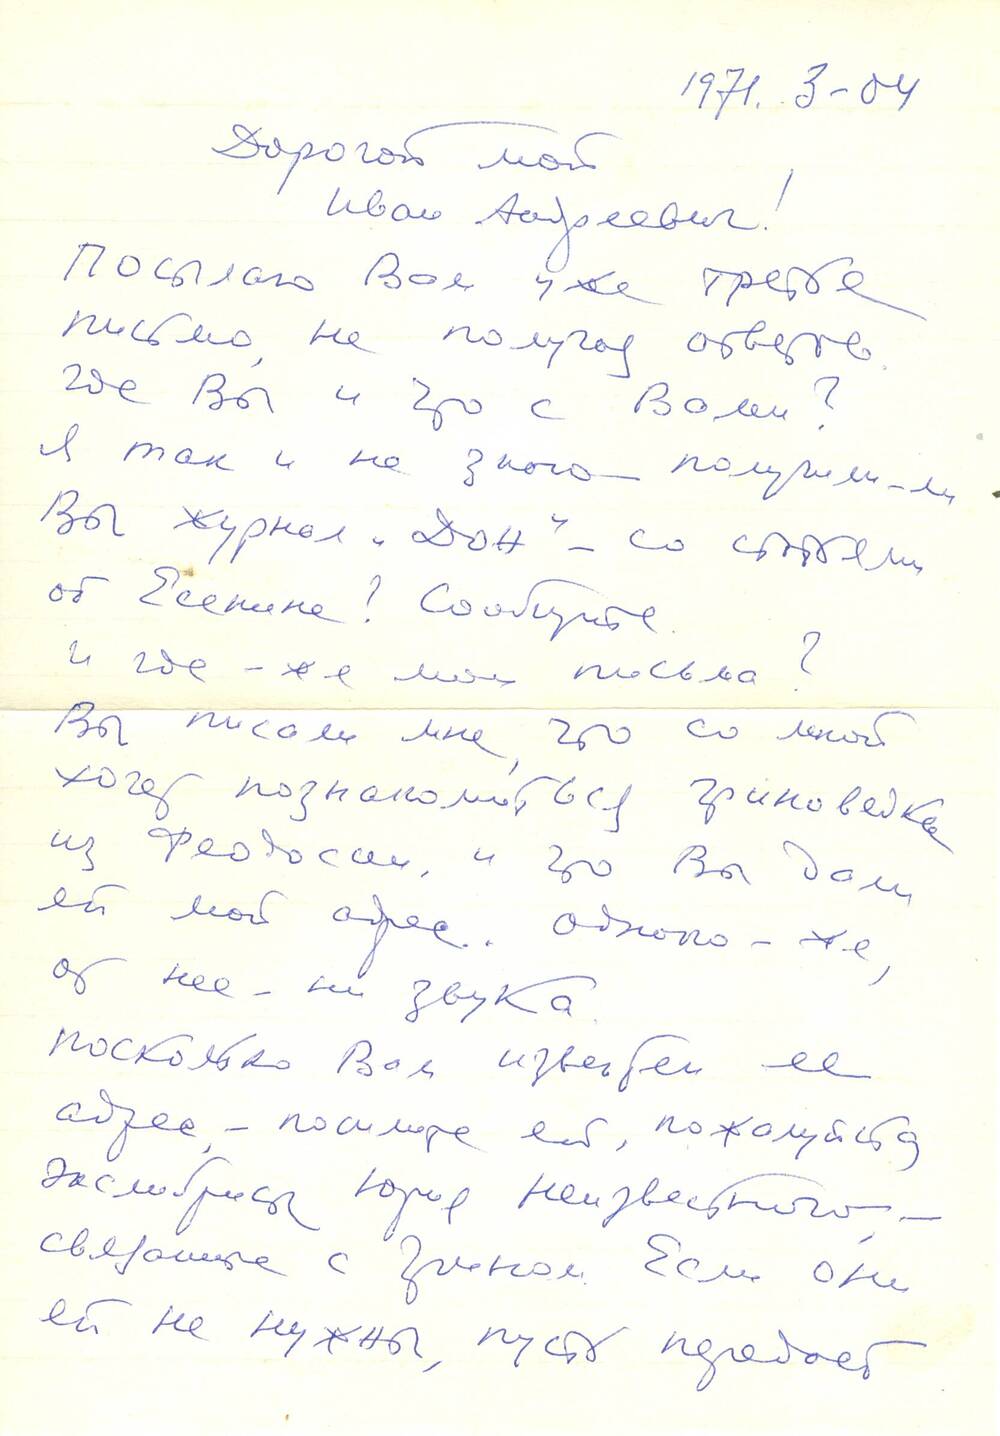 1971. 3-04
Дорогой мой
Иван Андреевич!
Посылаю Вам уже третье
письмо, не получая ответа.
где Вы и что с Вами?
Я так и не знаю получили-ли
Вы журнал „Дон" - со статьей
от Есенине? Сообщите.
и где-же мои письма?
Вы писали мне, что со мной
хочет познакомиться гриноведка
из Феодосии, и что Вы дали
ей мой адрес. однако-же,
от нее - ни звука.
поскольку Вам известен ее
адрес, - пошлите ей, пожалуйста
экслибрисы Юрия Неизвестного, -
связанные с Грином. Если они
ей не нужны, пусть передаст